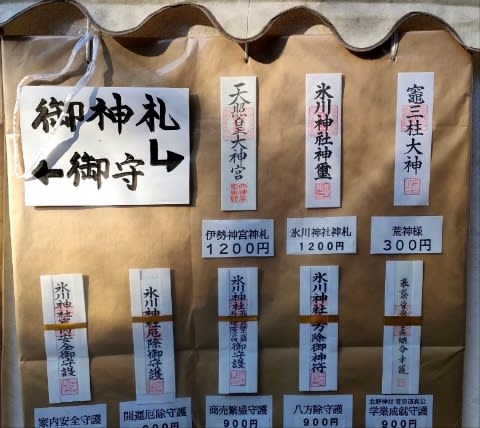 御神札
御守
天照皇大神宮
氷川神社神璽
竈三柱大神
伊勢神宮神札
1200円
氷川神社神札
1200円
荒神様
300円
氷川神社家内安全御守護
氷川神社厄除御守護
氷川神社商売繁盛御守護
氷川神社八方除御神符
家内安全守護
開運厄除守護
商売繁盛守護
900円
八方除守護
900円
北野神社 菅原道真公
学業成就守護
900円